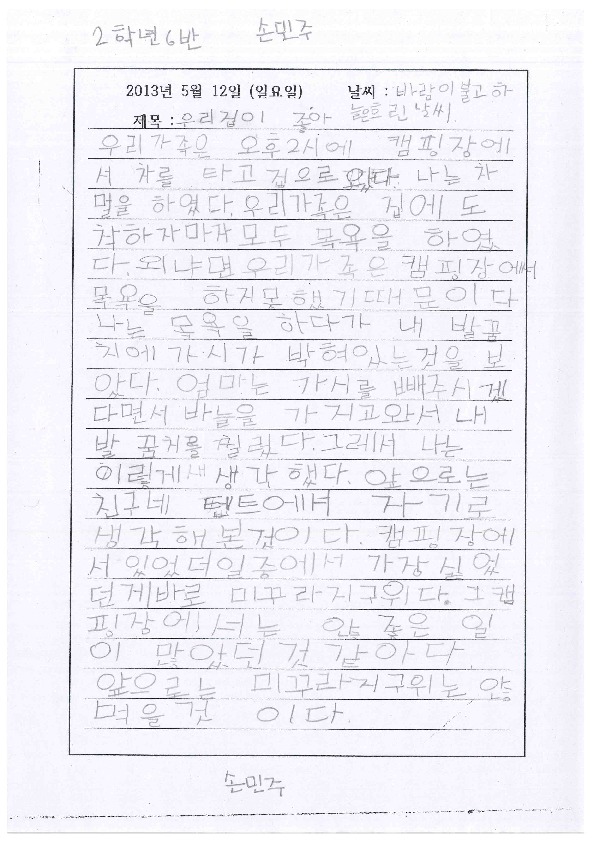 2학년 6반 손민주
2013년 5월 12일 (일요일) 날씨 : 바람이 불고 하
제목 : 우리집이 좋아 늘은흐린 날씨.
우리가족은 오후2시에 캠핑장에
서 차를 타고 집으로 왔다. 나는 차
멀을 하였다. 우리가족은 집에 도
착하자마자 모두 목욕을 하였
다. 외냐면 우리가족은 캠핑장에서
목욕을 하지못했기때문이다
나는 목욕을 하다가 내 발꿈
치에 가시가 박혀있는것을 보
았다. 엄마는 가시를 빼주시겠
다면서 바늘을 가지고와서 내
발꿈치를 찔렀다. 그레서 나는
이렇게 생각했다. 앞으로는
친구네 텐트에서 자기로
생각해본겁이다. 캠핑장에
서 있었더일중에서 가장 실었
던게바로 미꾸라지구위다. 그캠
핑장에서는 않좋은 일
이 많았던 것 같아다.
앞으로는 미꾸라지구위는 안
먹을것 이다.
손민주